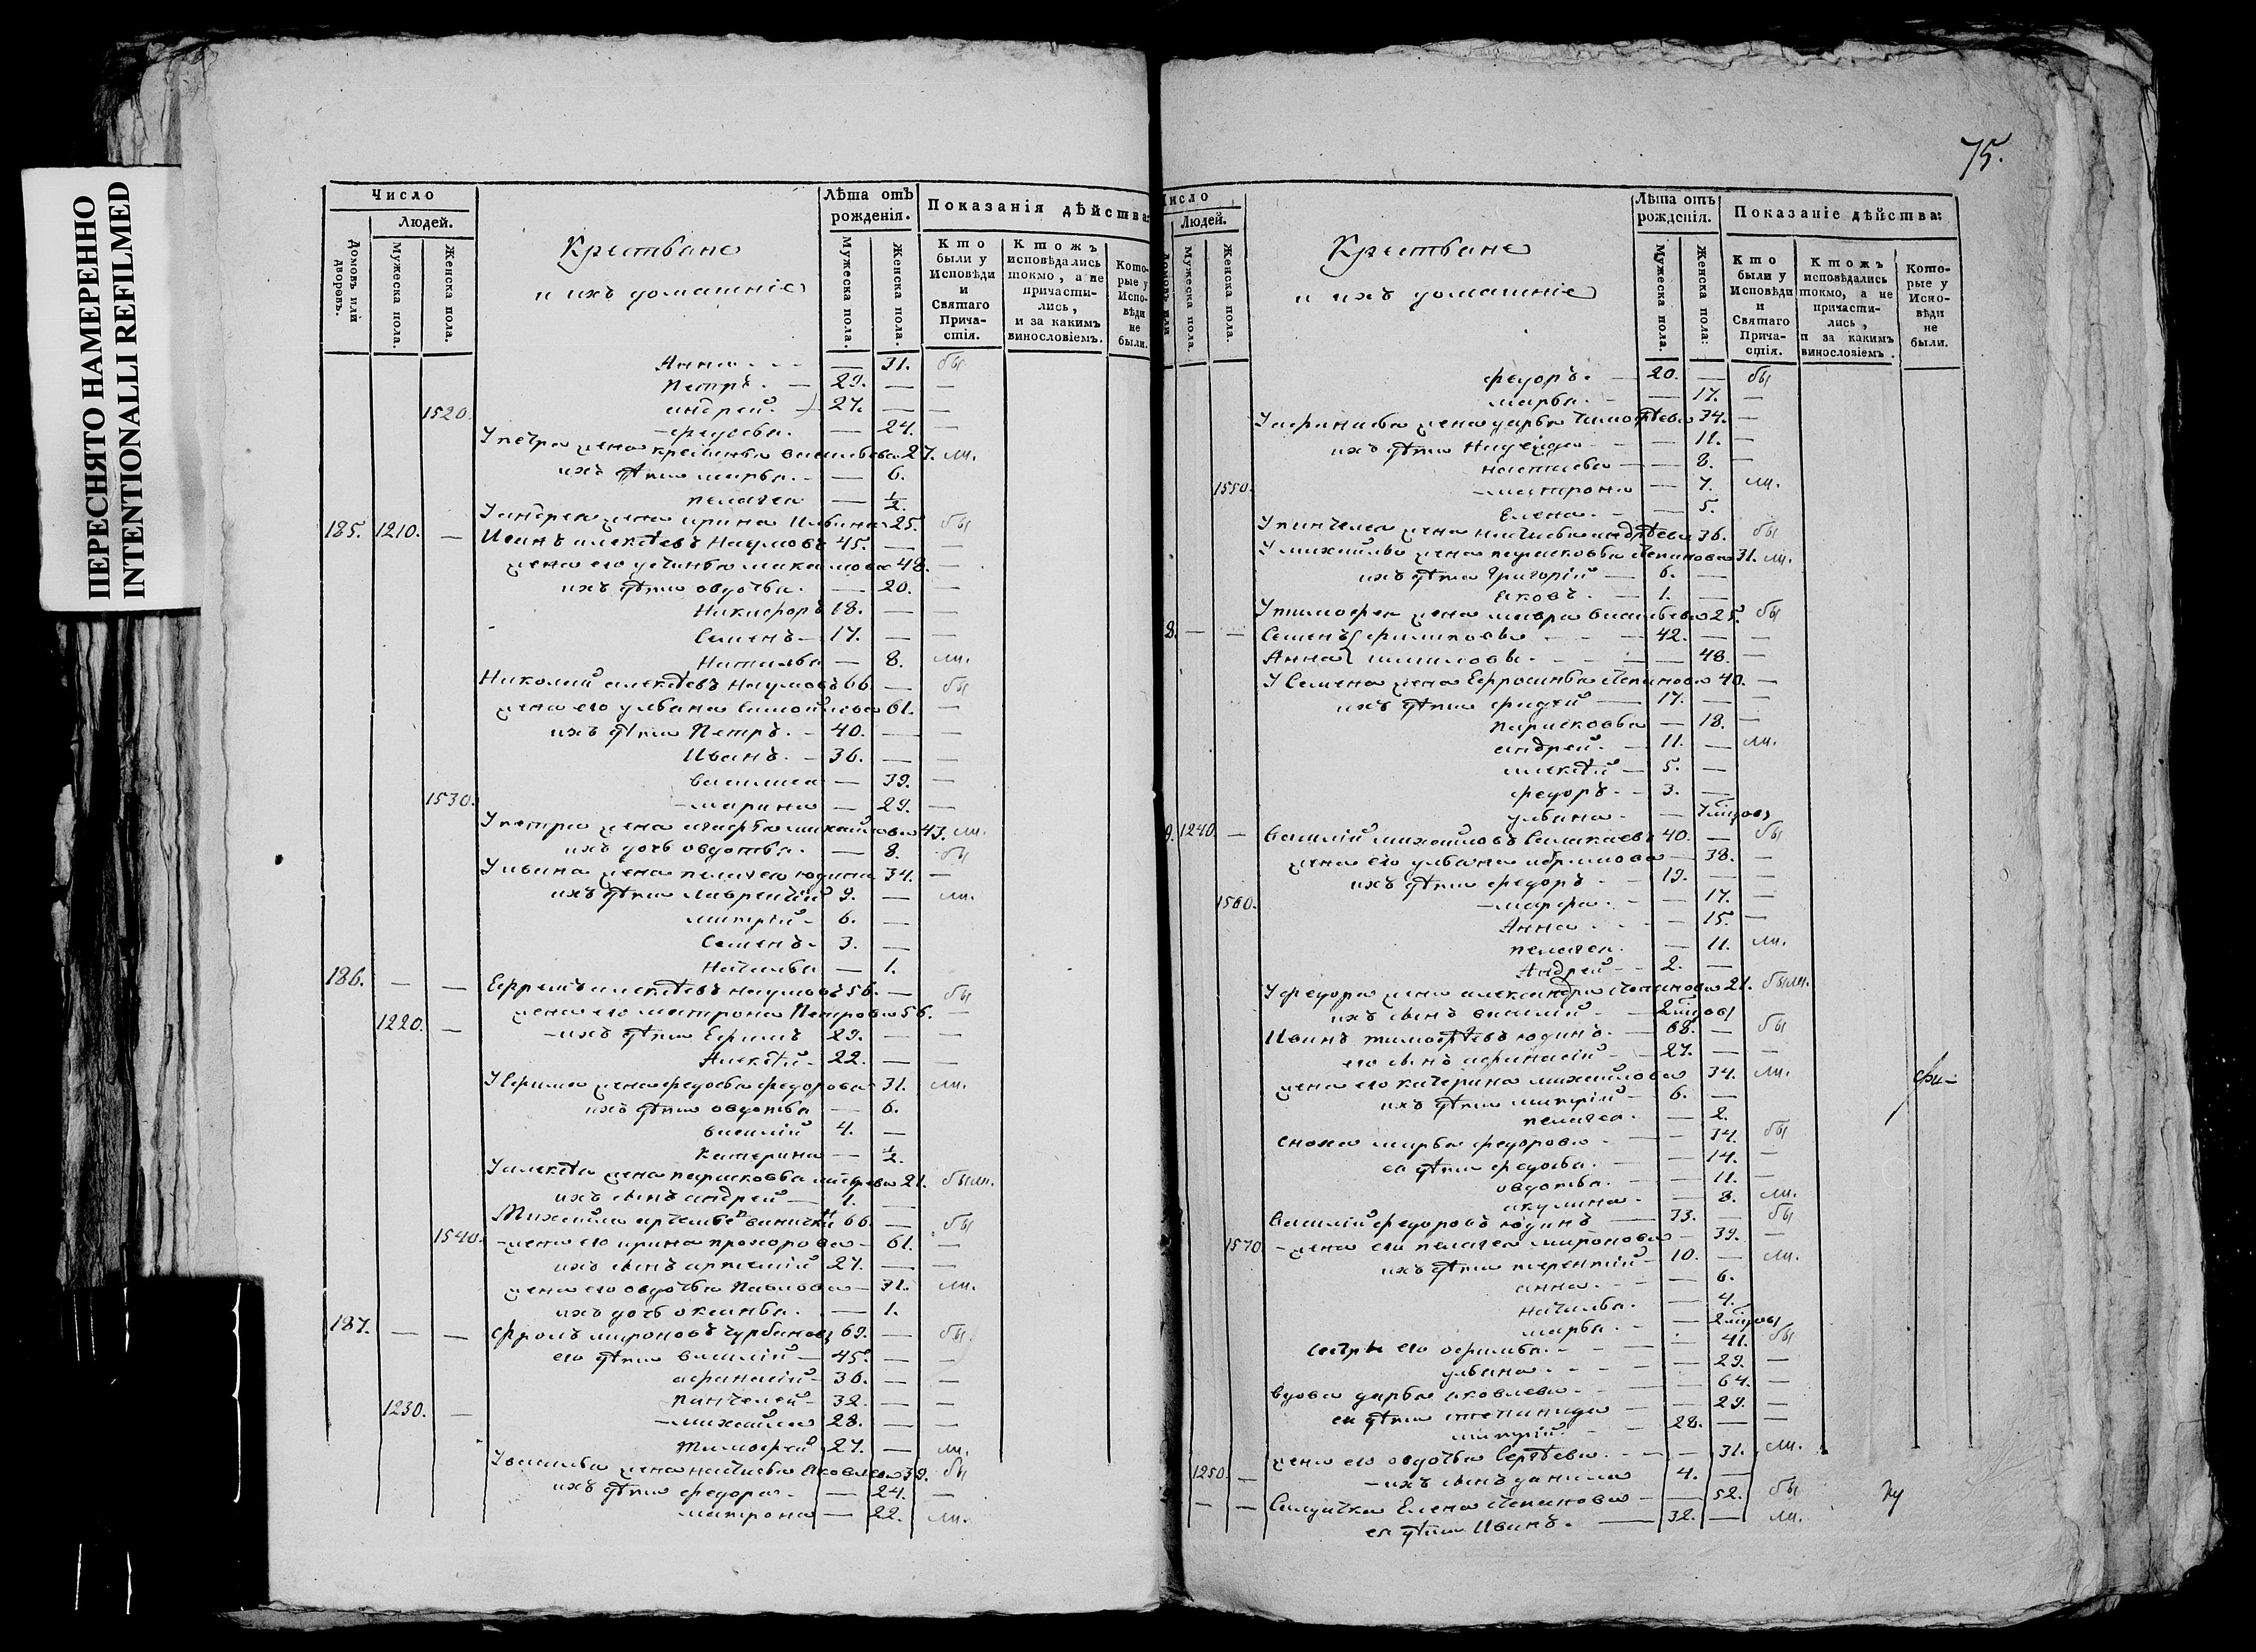 ПЕРЕСНЯТО НАМЕРЕННО
INTENTIONALLI REFILMED
Число
Людей.
Домовъ или дворовъ.
Мужеска пола.
Женска пола.
Крестьяне
и ихъ домашніе
Лѣта отъ рожденія.
Мужеска пола.
Женска пола.
Показанія дѣйства:
Кто были у Исповѣди и Святаго Прича-стія.
Ктожъ исповѣдались токмо, а не причасти-лись, и за какимъ винословіемъ.
Кото-рые у Испо-вѣди не были.
Анна — 31. бы
Петръ. — 29. — —
1520. андрей. — 27. — —
федосья. — 24. —
У петра жена васильева 27. мл.
ихъ дѣти марья. — 6.
пелагея — 1/2.
У андрея жена ирина 25. бы
185. 1210. — Иванъ алексѣевъ Наумовъ 45. — —
жена его устинья 48. —
ихъ дѣти овдотья. — 20. —
Никифоръ 18. — —
Семенъ — 17. — —
Наталья — 8. мл.
Николай алексѣевъ Наумовъ 66. — бы
жена его ульяна самойлова 61. —
ихъ дѣти Петръ. — 40. — —
Иванъ. — 36. — —
василиса — 39. —
1530. марина — 29. —
У петра жена агафья михайлова 43. мл.
ихъ дочь овдотья. — 8. бы
У ивана жена пелагея юдина 34. —
ихъ дѣти лаврентій 9. — мл.
митрій — 6. —
Семенъ — 3. —
Наталья — 1.
186. — — Ефремъ алексѣевъ наумовъ 56. — бы
жена его матрона Петрова 56. —
1220. — ихъ дѣти Ефимъ 29. — —
Алексѣй — 22. — —
У Ефима жена федосья федорова 31. мл.
ихъ дѣти овдотья — 6.
василій 4. —
Катерина — 1/2.
У алексѣя жена парасковья 21.
ихъ сынъ андрей — 1. —
Михайла 66. — бы
1540. жена его ирина прохорова — 61. —
ихъ сынъ артемій 27. — —
жена его овдотья Павлова — 31. мл.
ихъ дочь оксинья. — 1.
187. — — фролъ мироновъ 69. — бы.
его дѣти василій — 45. — —
афанасій — 36. — —
Пантелей — 32. — —
1230. — михайла 28. — —
тимофей 27. — мл.
У василья жена настасья Яковлева 39. бы
ихъ дѣти федора — 24. —
матрона — 22. мл.
75.
Число
Людей.
Домовъ или
Мужеска пола.
Женска пола.
Крестьяне
и ихъ домашніе
Лѣта отъ рожденія.
Мужеска пола.
Женска пола:
Показаніе дѣйства:
Кто были у Исповѣди и Святаго Прича-стія.
Ктожъ исповѣдались токмо, а не причасти-лись, и за какимъ винословіемъ.
Кото-рые у Испо-вѣди не были.
федоръ. — 20. — бы
марья. — — 17. —
У афанасья жена дарья тимофѣева 34. —
ихъ дѣти Надежда — — 11. —
настасья — — 8. —
1550. матрона — 7. мл.
Елена. — 5.
У пантелея жена настасья андрѣева 36. бы
У михайлы жена парасковья степанова 31. мл.
ихъ дѣти Григорій — 6. —
яковъ. — 1. —
У тимофея жена мавра васильева 25. бы
8. — — Семенъ филиповы — 42. — —
Анна — — 48. —
У Семена жена Ефросинья степанова 40. —
ихъ дѣти — 17. —
парасковья — 18. —
андрей. — 11. — мл.
алексѣй — 5. —
федоръ. — 3. —
ульяна. —
9. 1240. — василій михайловъ 40. — бы
жена его ульяна абрамова — 38. —
ихъ дѣти федоръ — 19. — —
1560. марфа. — — 17. —
Анна — 15. —
пелагея. — 11. мл.
Андрей — 2. —
У федора жена александра степанова 21.
ихъ сынъ василій
Иванъ тимофѣевъ юдинъ. — 68. — бы
его сынъ афанасій — 27. — —
жена его катерина михайлова 34. мл.
ихъ дѣти митрій — 6. —
пелагея. — 2.
сноха марья федорова — — 34. бы
ея дѣти федосья. — — 14. —
овдотья. — — 11. —
акулина. — — 8. мл.
василій федоровъ юдинъ — 33. — бы
1570. жена его пелагея миронова — 39. —
ихъ дѣти терентій — 10. — мл.
анна. — — 6.
наталья. — 4.
марья. —
сестры его — 41. бы
ульяна. — — 29. —
вдова дарья яковлева. — 64. —
ея дѣти степанида — — 29. —
митрій. — 28. — —
жена его овдотья Сергѣева. — — 31. мл.
1250. — ихъ сынъ данила 4. —
— — Салдатка Елена степанова — — 52. бы
ея дѣти Иванъ. — 32. — мл.